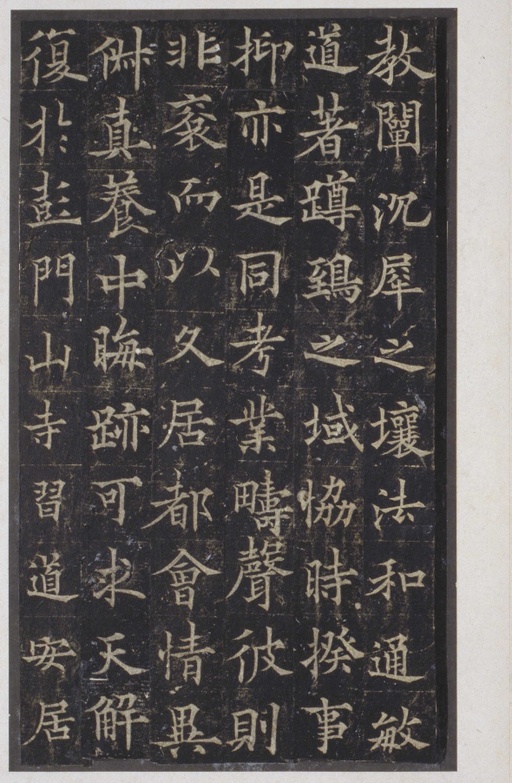 教闡沉犀之壤法和通敏
道著蹲鵄之域協時揆事
抑亦是同考業疇聲彼則
非而以久居都會情異
真養中晦跡可求天解
復於彭門山寺習道安居